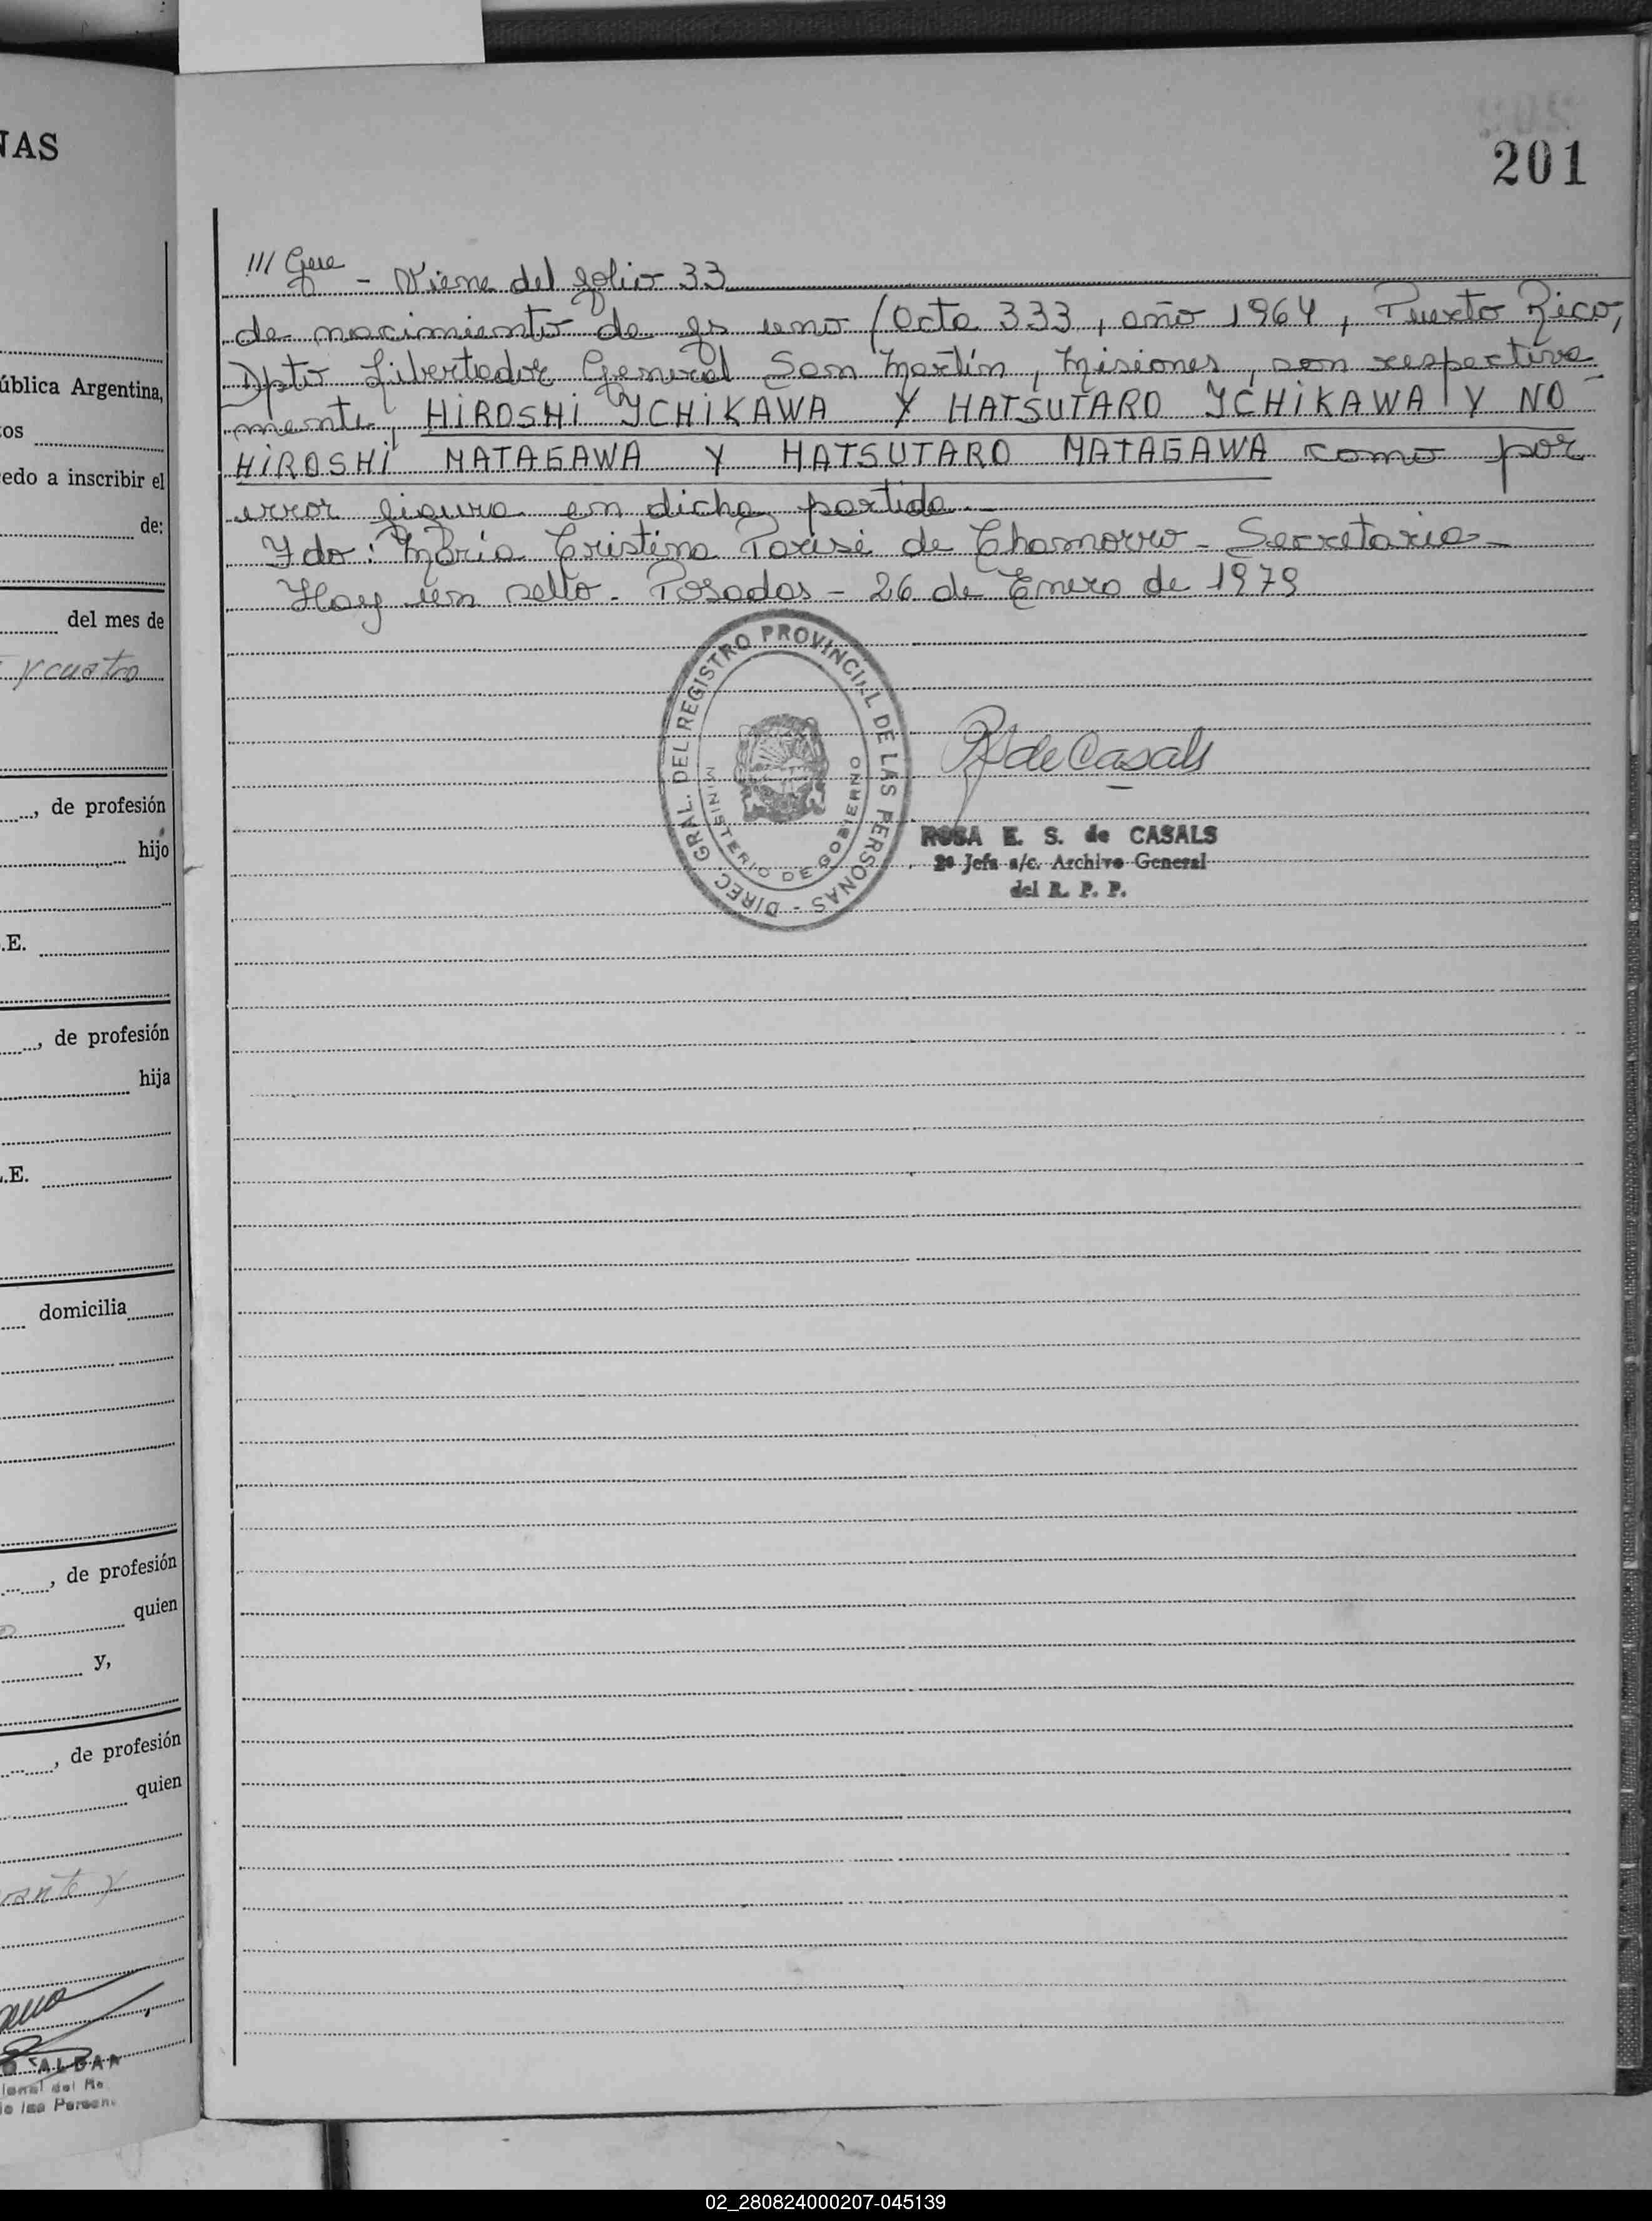 NAS
ública Argentina,
os
edo a inscribir el
de:
del mes de
y cuatro
, de profesión
hijo
.E.
, de profesión
hija
.E.
domicilia
, de profesión
quien
y,
, de profesión
quien
y
201
/// Que - Viene del folio 33
de nacimiento de fs uno (Acta 333, año 1964, Puerto Rico,
Dpto Libertador General San Martín, Misiones, son respectiva-
mente, HIROSHI YCHIKAWA Y HATSUTARO YCHIKAWA Y NO
HIROSHI MATAGAWA Y HATSUTARO MATAGAWA como por
error figura en dicha partida.-
Fdo: María Cristina Parisi de Chamorro - Secretaria -
Hay un sello - Posadas - 26 de Enero de 1979
DIREC. GRAL. DEL REGISTRO PROVINCIAL DE LAS PERSONAS -
MINISTERIO DE GOBIERNO
R S de Casals
ROSA E. S. de CASALS
2ª Jefa a/c. Archivo General
del R. P. P.
02_280824000207-045139